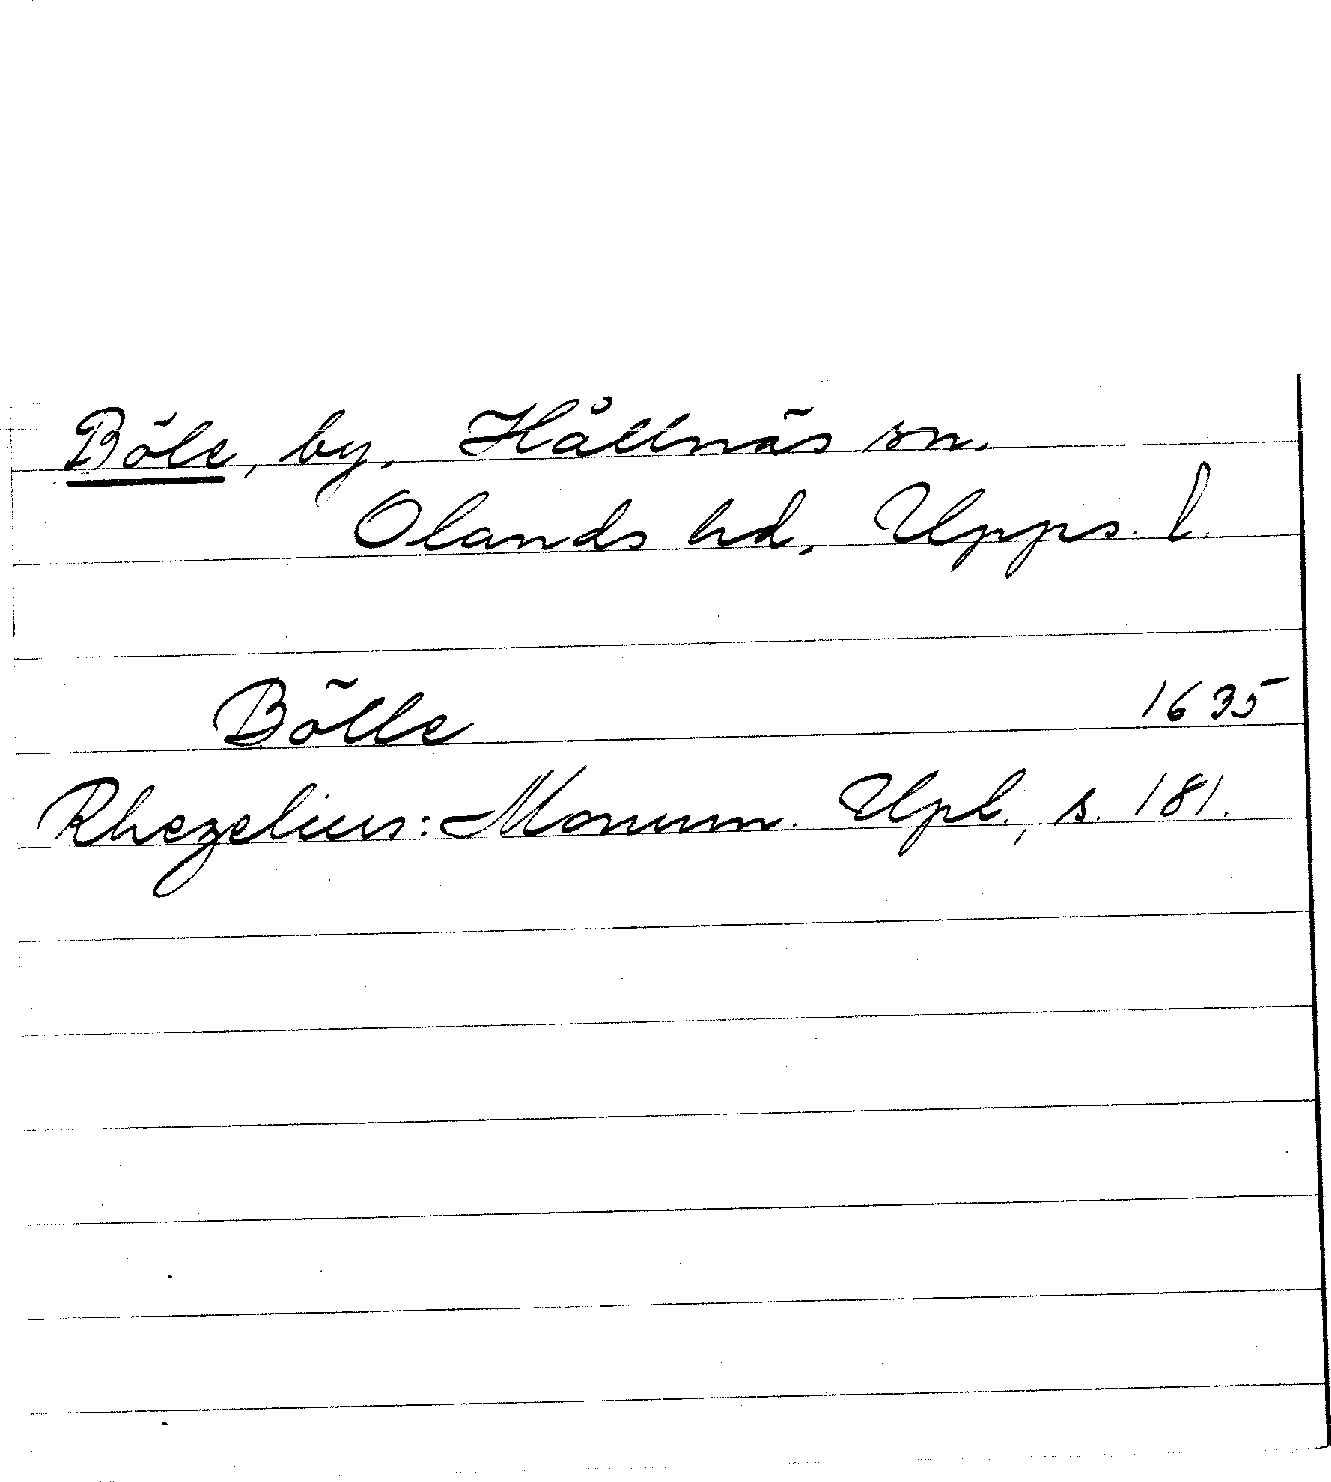 Böle, by, Hållnäs sn.
Olands hd, Upps. l.
Bölle 1635
Rhezelius: Monum. Upl., s. 181.